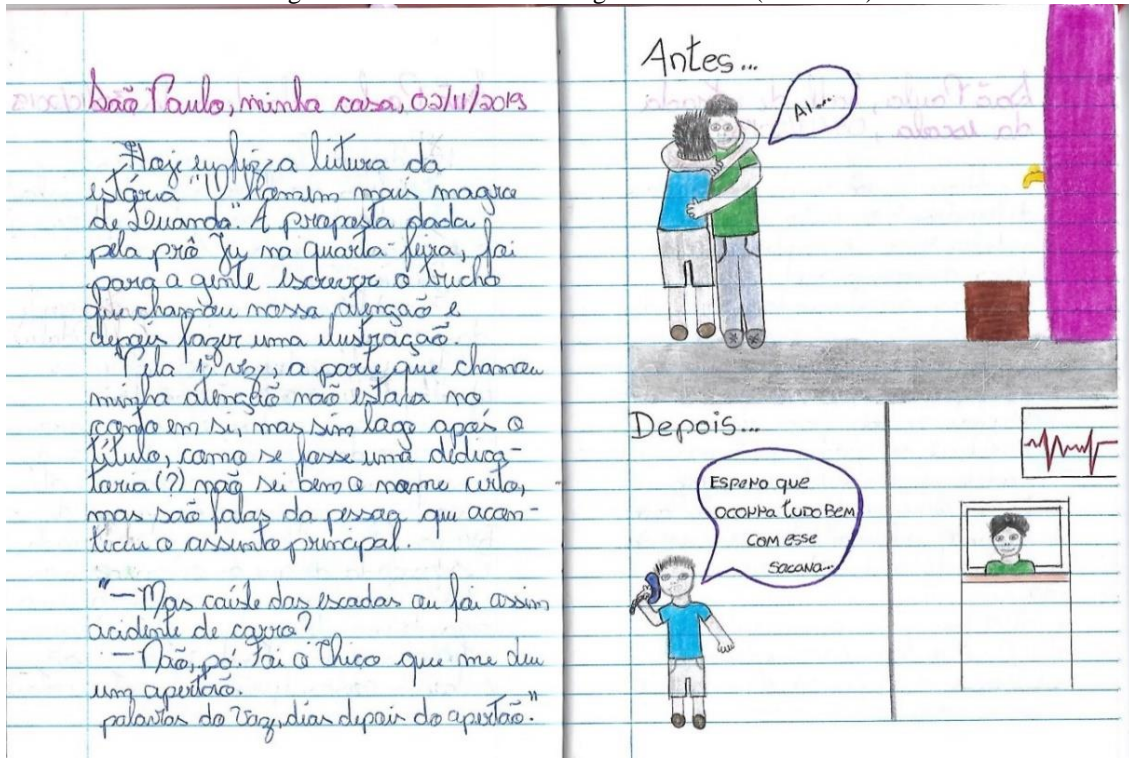 São Paulo, minha casa, 02/11/2019
Hoje eu fiz a leitura da
estória "O homem mais magro
de Luanda". A proposta dada
pela prô Ju na quarta-feira, foi
para a gente escrever o trecho
que chamou nossa atenção e
depois fazer uma ilustração.
Pela 1ª vez, a parte que chamou
minha atenção não estava no
conto em si, mas sim logo após o
título, como se fosse uma dedica-
toria (?) não sei bem o nome certo,
mas são falas da pessoa que acon-
teceu o assunto principal.
"— Mas caíste das escadas ou foi assim
acidente de carro?
— Não, pá. Foi o Chico que me deu
um apertão.
palavras do Vaz, dias depois do apertão."
Antes...
AI....
Depois...
Espero que
ocorra tudo bem
com esse
sacana...